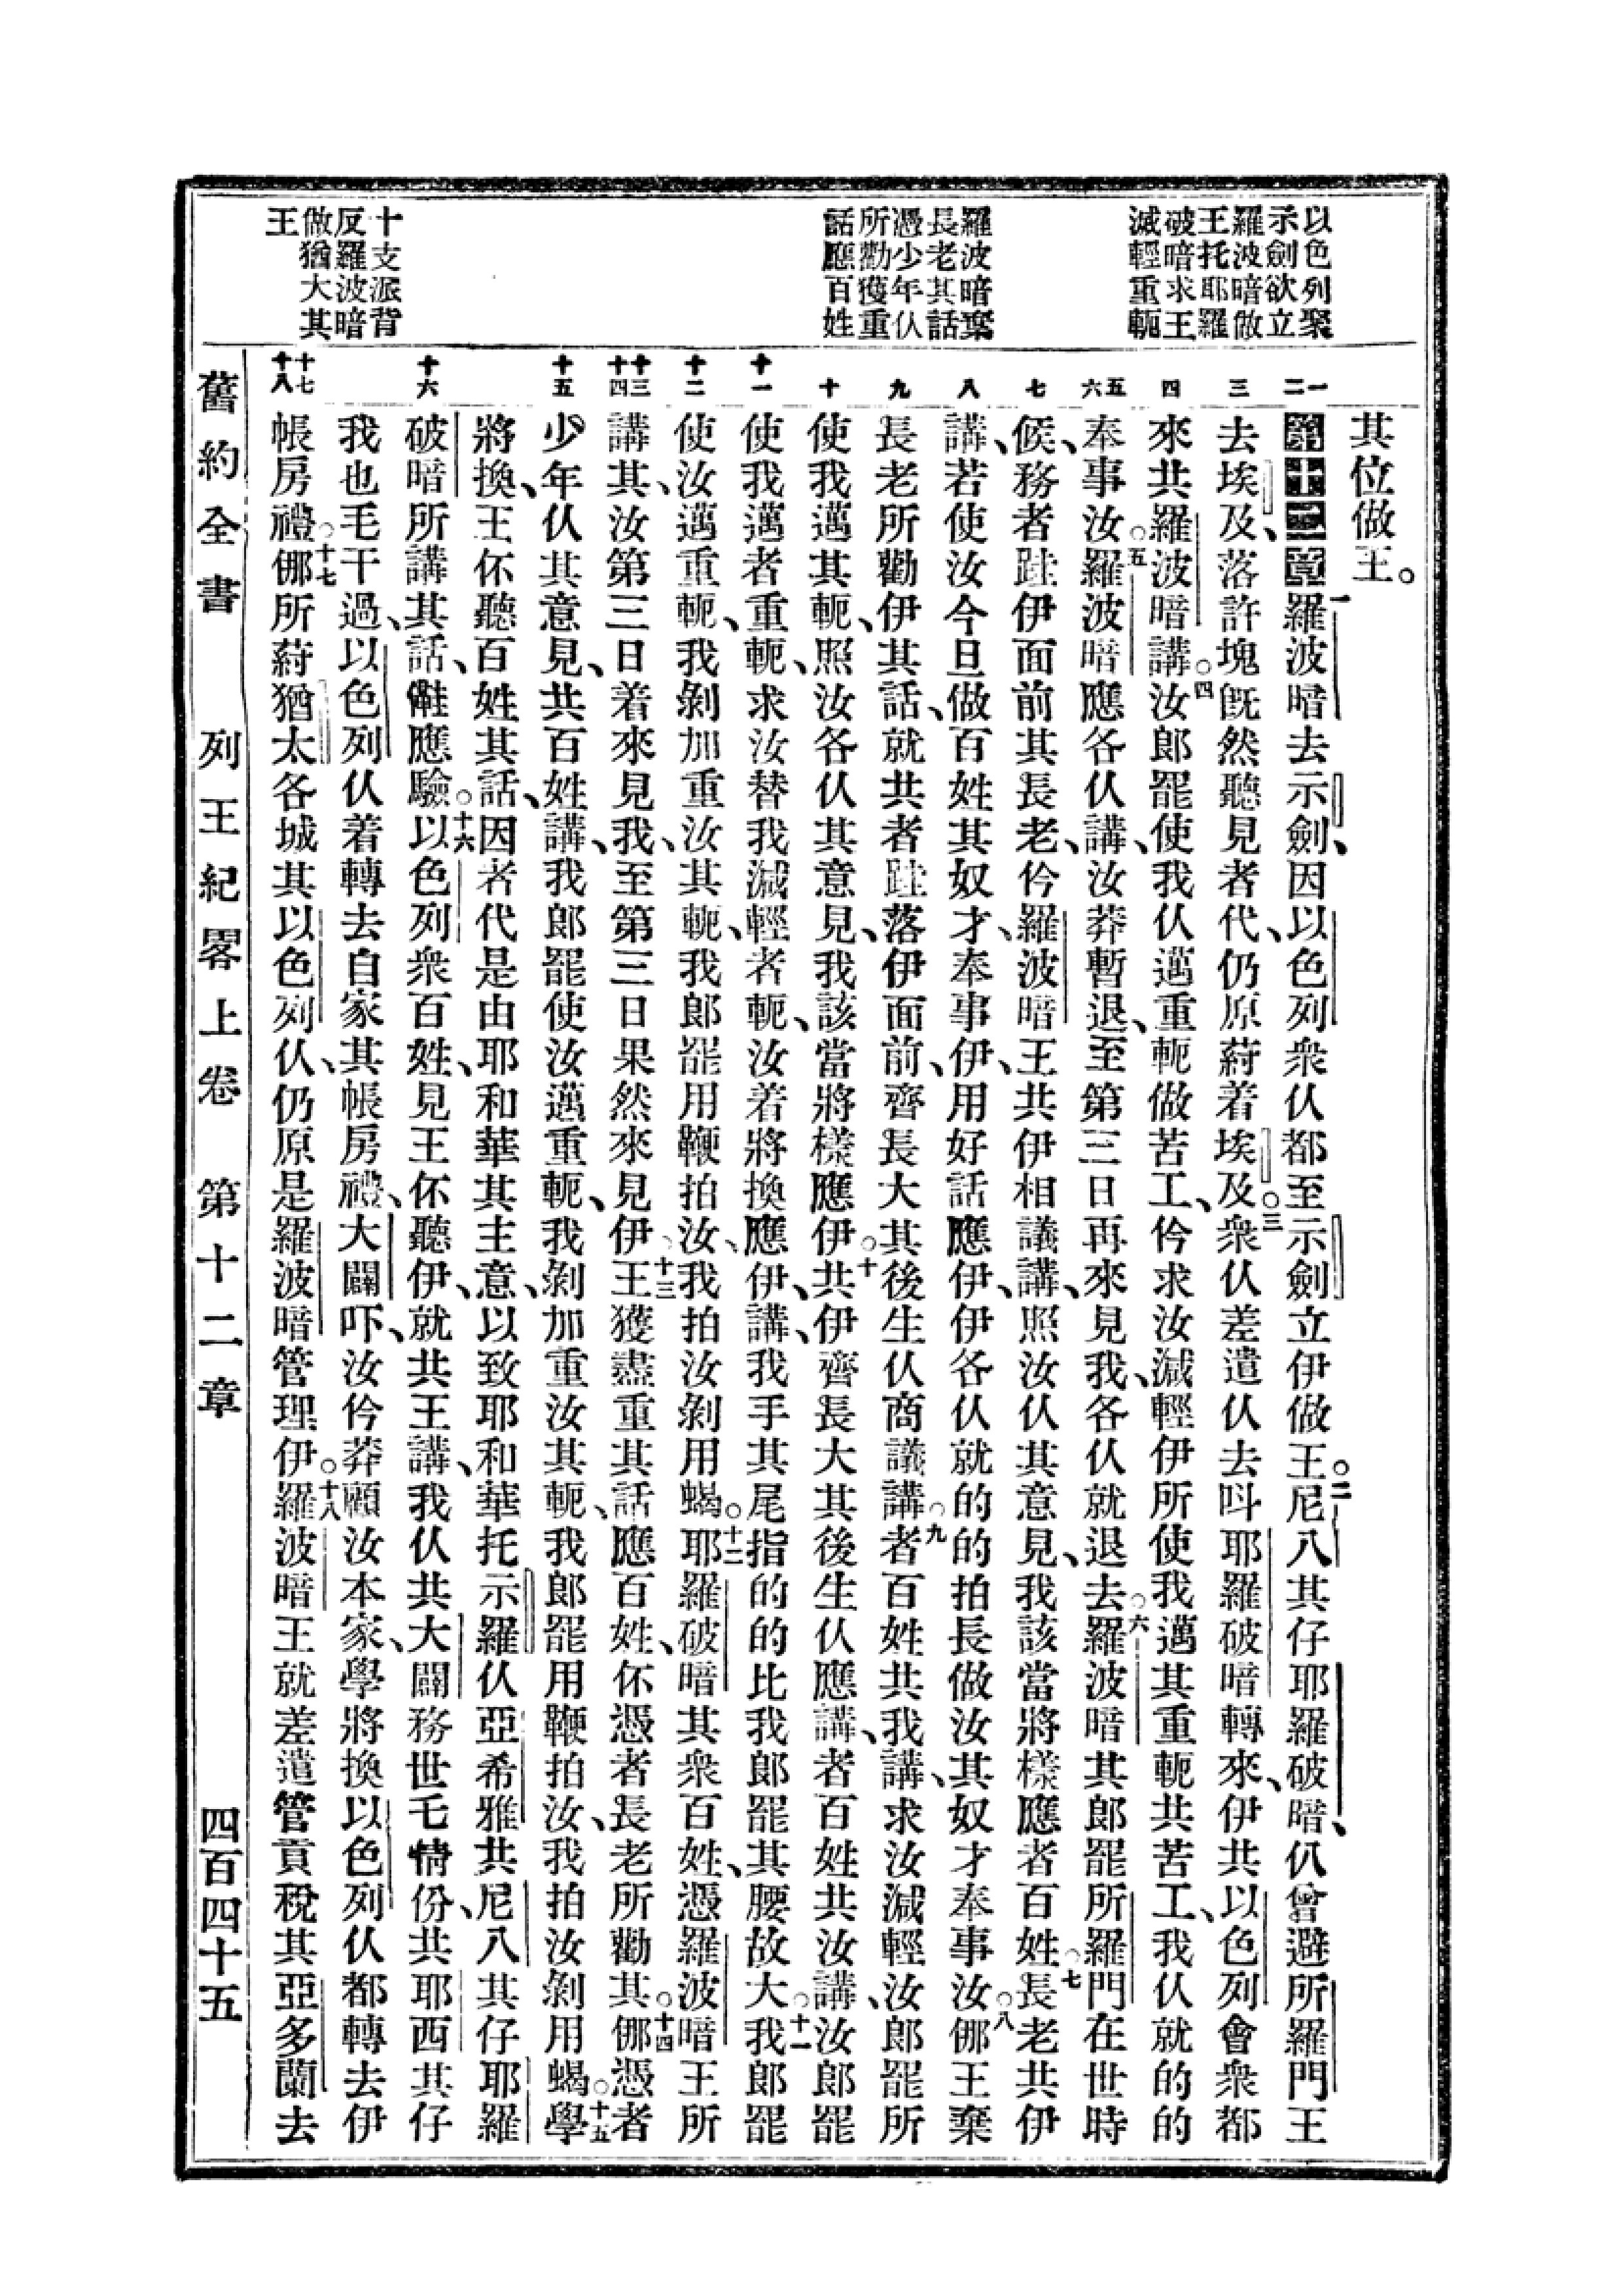 以色列聚
示劍欲立
羅波暗做
王托耶羅
破暗求王
減輕重軛
羅波暗棄
長老其話
憑少年仈
所勸獲重
話應百姓
十支派背
反羅波暗
做猶大其
王
一二
三
四
五六
七
八
九
十
十一
十二
十三十四
十五
十六
十七十八
其位做王。
第十二章一羅波暗去示劍、因以色列衆仈都至示劍立伊做王。二尼八其仔耶羅破暗、仈曾避所羅門王
去埃及、落許塊旣然聽見者代、仍原蒔着埃及。三衆仈差遣仈去呌耶羅破暗轉來、伊共以色列會衆都
來共羅波暗講。四汝郎罷使我仈邁重軛做苦工、伱求汝減輕伊所使我邁其重軛共苦工、我仈就的的
奉事汝。五羅波暗應各仈講、汝莽暫退、至第三日再來見我、各仈就退去。六羅波暗其郎罷所羅門在世時
候、務者跬伊面前其長老、伱羅波暗王共伊相議講、照汝仈其意見、我該當將樣應者百姓。七長老共伊
講、若使汝今旦做百姓其奴才、奉事伊、用好話應伊、伊各仈就的的拍長做汝其奴才奉事汝。八㑚王棄
長老所勸伊其話、就共者跬落伊面前、齊長大其後生仈商議講。九者百姓共我講、求汝減輕汝郎罷所
使我邁其軛、照汝各仈其意見、我該當將樣應伊。十共伊齊長大其後生仈應講、者百姓共汝講、汝郎罷
使我邁者重軛、求汝替我減輕者軛、汝着將換應伊、講、我手其尾指的的比我郎罷其腰故大。十一我郎罷
使汝邁重軛、我剝加重汝其軛、我郎罷用鞭拍汝、我拍汝剝用蝎。十二耶羅破暗其衆百姓、憑羅波暗王所
講其、汝第三日着來見我、至第三日果然來見伊。十三王獲盡重其話應百姓、伓憑者長老所勸其。十四㑚憑者
少年仈其意見、共百姓講、我郎罷使汝邁重軛、我剝加重汝其軛、我郎罷用鞭拍汝、我拍汝剝用蝎。十五學
將換、王伓聽百姓其話、因者代是由耶和華其主意、以致耶和華托示羅仈亞希雅共尼八其仔耶羅
破暗所講其話、㑚應驗。十六以色列衆百姓、見王伓聽伊、就共王講、我仈共大闢務世乇情份、共耶西其仔
我也毛干過、以色列仈着轉去自家其帳房禮、大闢吓、汝伱莽顧汝本家、學將換以色列仈都轉去伊
帳房禮。十七㑚所蒔猶太各城其以色列仈、仍原是羅波暗管理伊。十八羅波暗王就差遣管貢稅其亞多蘭去
舊約全書 列王紀畧上卷 第十二章 四百四十五